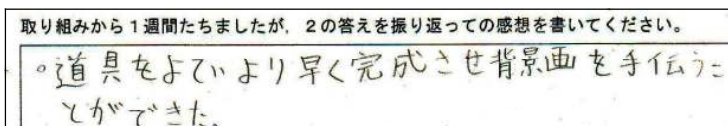 取り組みから１週間たちましたが，２の答えを振り返っての感想を書いてください。
。道具をよていより早く完成させ背景画を手伝うこ
とができた。